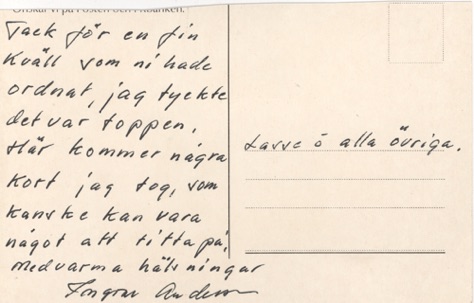 Önskar vi på Posten och Postbanken.
Tack för en fin
kväll som ni hade
ordnat, jag tyckte
det var toppen.
Här kommer några
kort jag tog, som
kanske kan vara
något att titta på.
Med varma hälsningar
Ingvar
Lasse o alla övriga.